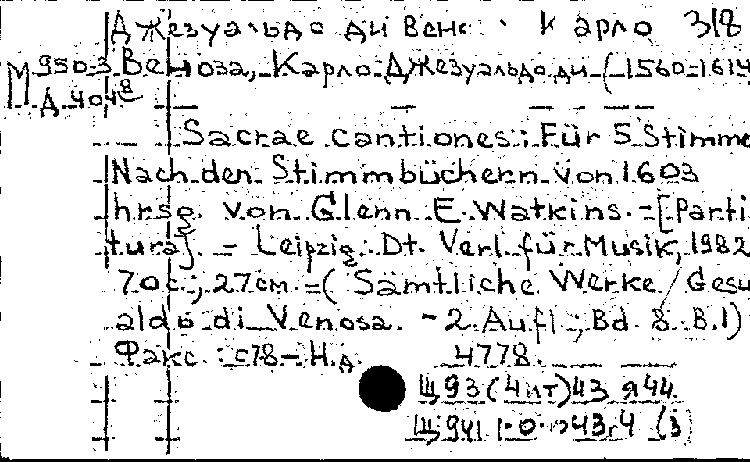 Джезуальдо ди Вено Карло 318
М 950-3 Веноза, Карло Джезуальдо ди (1560-1614
Д 404
Sacrae cantiones: Für 5 Stimme
Nach den Stimmbüchern von 1603
hrsg. von Glenn E. Watkins. - [Parti
tura]. - Leipzig: Dt. Verl. für Musik, 1982
70 с.; 27 cm. - (Sämtliche Werke / Gesu
aldo di Venosa. - 2. Aufl.; Bd. 8. B.1)
Факс.: с 78 - Н.д. 4778.
Щ93(4ит)43 я44
Щ941 43.4 (3)